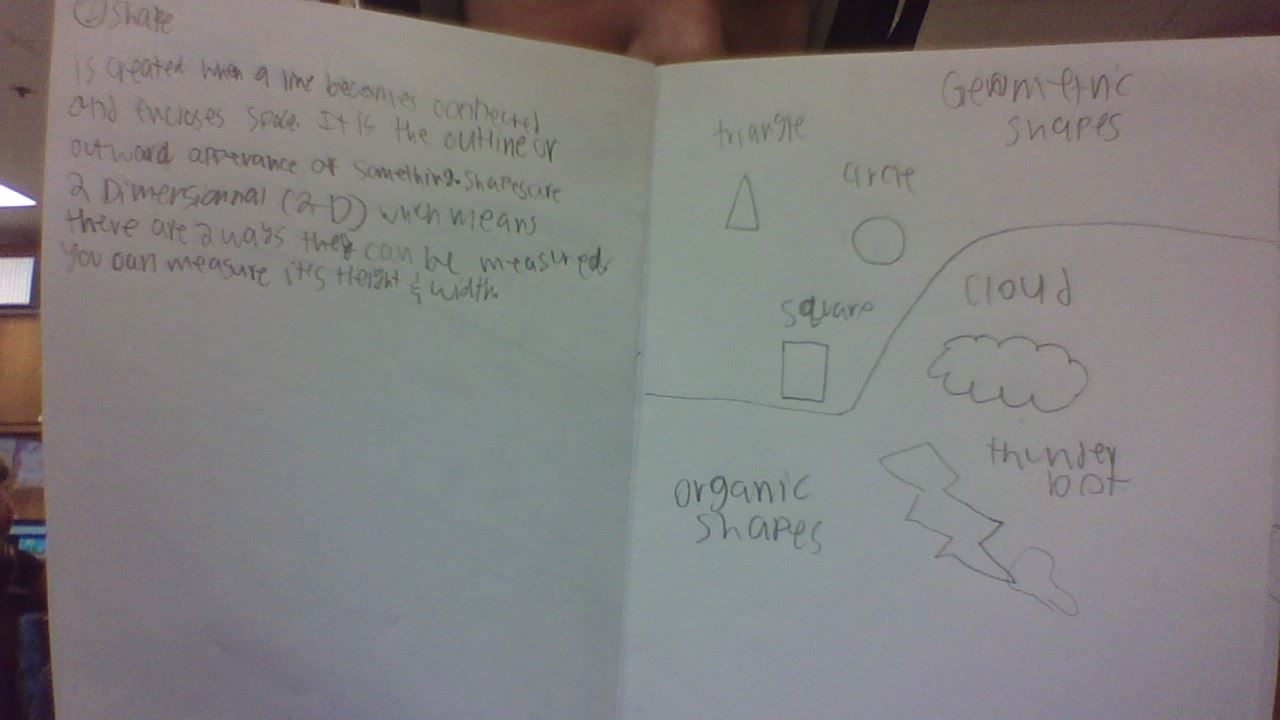 ② Shape
is created when a line becomes connected
and encloses space. It is the outline or
outward apperance of something. Shapes are
2 Dimensionnal (2-D) which means
there are 2 ways they can be measured.
You can measure it's Height & width.
Geometric
shapes
triangle
circle
square
cloud
thunder
bolt
organic
shapes